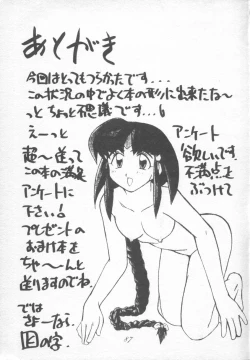 あとがき
今回はとってもつらかったです...
この状況の中でよく本の形に出来たな〜
っと ちょっと不思議です...6
えーっと
アンケート
超〜送って
欲しいです
この本の満足
不満点を
アンケートに
ぶつけて
下さい!
プレゼントの
おまけ本を
ちゃ〜んと
送りますのでね
では
さよーなら